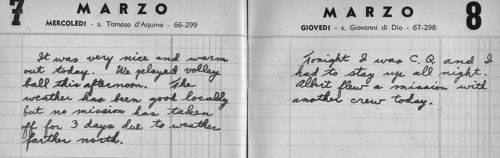 7 MARZO
MERCOLEDI - s. Tomaso d'Aquino - 66-299
It was very nice and warm
out today. We played volley
ball this afternoon. The
weather has been good locally
but no mission has taken
off for 3 days due to weather
farther north.
MARZO 8
GIOVEDI - s. Giovanni di Dio - 67-298
Tonight I was C.Q. and I
had to stay up all night.
Albit flew a mission with
another crew today.